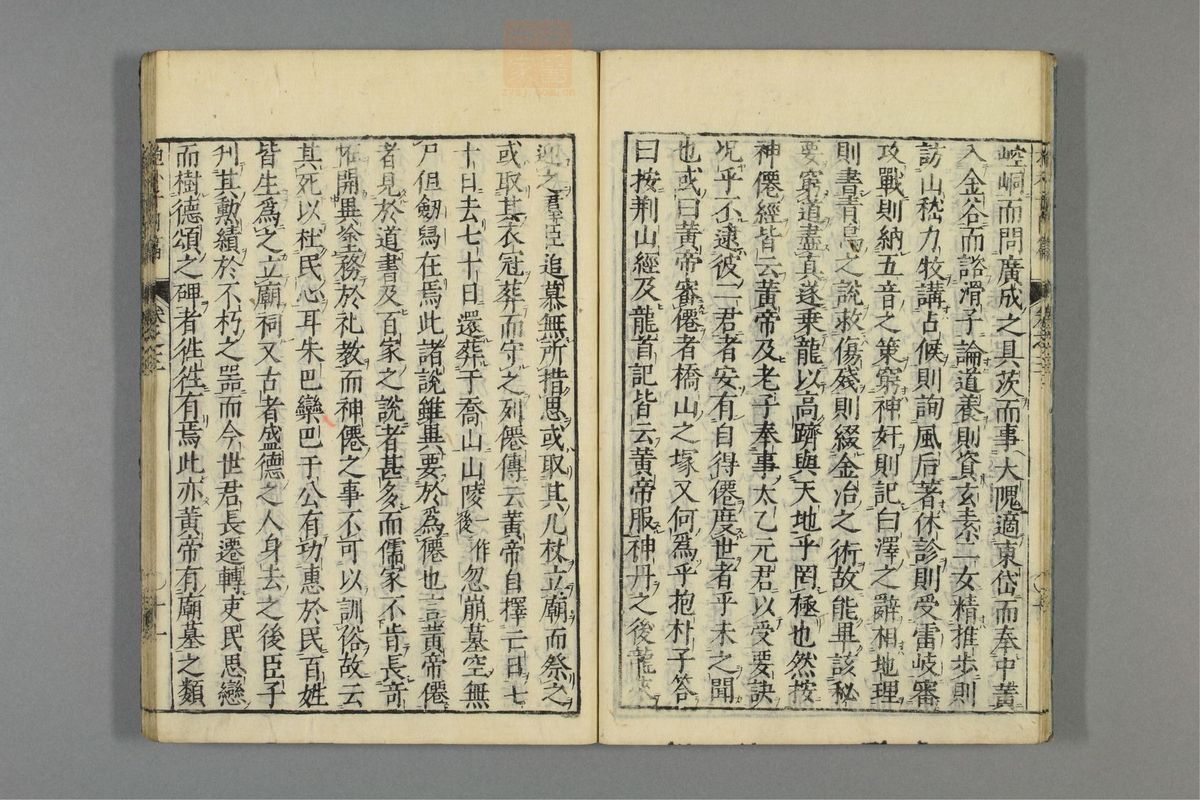 崆峒而問廣成之具茨而事大隗適東岱而奉中黃
入金谷而諮滑子論道養則資玄素二女精推步則
訪山稽力牧講占候則詢風后著休診則受雷岐審
攻戰則納五音之策窮神奸則記白澤之辭相地理
則書青烏之說救傷殘則綴金冶之術故能畢該秘
要窮道盡真遂乗龍以高躋與天地乎罔極也然按
神僊經皆云黃帝及老子奉事太乙元君以受要訣
况乎不逮彼二君者安有自得僊度世者乎未之聞
也或曰黃帝審僊者橋山之塚又何爲乎抱朴子答
曰按荆山經及龍首記皆云黃帝服神丹之後龍
迎之羣臣追慕無所措思或取其几杖立廟而祭之
或取其衣冠葬而守之列僊傳云黃帝自擇亡日七
十日去七十日還葬于喬山山陵一作後忽崩墓空無
尸但劒舄在焉此諸說雖異要於爲僊也言黃帝僊
者見於道書及百家之說者甚多而儒家不肯長竒
恠開異塗務於礼教而神僊之事不可以訓俗故云
其死以杜民心耳朱邑欒巴于公有功惠於民百姓
皆生爲之立廟祠又古者盛德之人身去之後臣子
刋其勲績於不朽之噐而今世君長遷轉吏民思戀
而樹德頌之碑者徃徃有焉此亦黃帝有廟墓之類